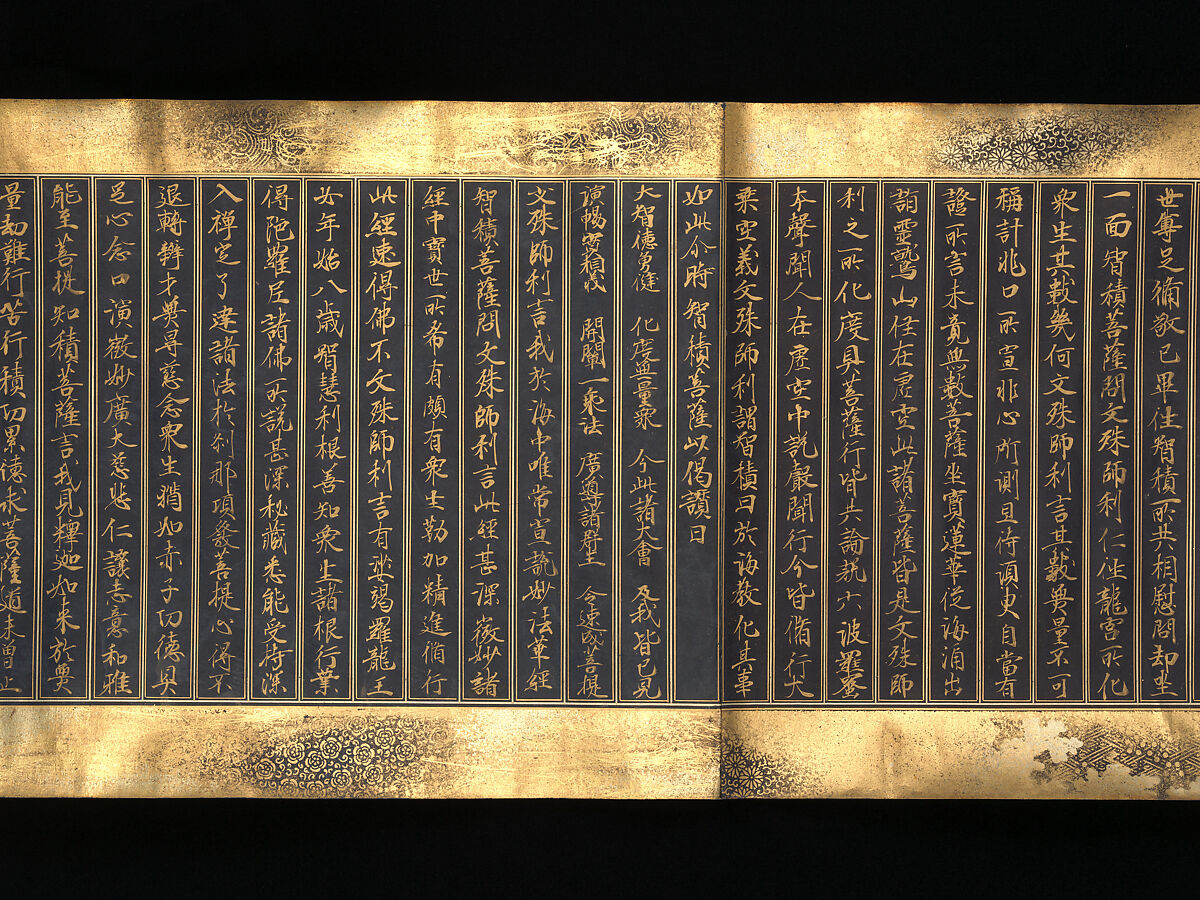 世尊足俻敬已畢往智積所共相慰問却坐
一面智積菩薩問文殊師利仁往龍宮所化
衆生其數幾何文殊師利言其數無量不可
稱計非口所宣非心所測且待須臾自當有
證所言未竟無數菩薩坐寶蓮華從海涌出
詣靈鷲山住在虚空此諸菩薩皆是文殊師
利之所化度具菩薩行皆共論説六波羅蜜
本聲聞人在虚空中説聲聞行今皆脩行大
乘空義文殊師利謂智積曰於海教化其事
如此尒時智積菩薩以偈讃曰
大智德勇健 化度無量衆 今此諸大會 及我皆已見
演暢實相義 開闡一乘法 廣導諸群生 令速成菩提
文殊師利言我於海中唯常宣説妙法華經
智積菩薩問文殊師利言此經甚深微妙諸
經中寶世所希有頗有衆生勤加精進脩行
此經速得佛不文殊師利言有娑竭羅龍王
女年始八歳智慧利根善知衆生諸根行業
得陀羅尼諸佛所説甚深秘藏悉能受持深
入禪定了達諸法於刹那頃發菩提心得不
退轉辯才無导慈念衆生猶如赤子功德具
足心念口演微妙廣大慈悲仁讓志意和雅
能至菩提知積菩薩言我見釋迦如来於無
量劫難行苦行積功累德求菩薩道未曾止